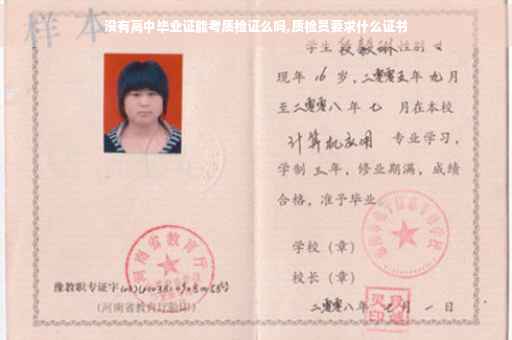 没有高中毕业证能考质检证么吗,质检员要求什么证书
样本
学生 性别
现年 16 岁,二零零五年 九 月
至二零零八 年 七 月在本校
计算机应用 专业学习,
学制 三 年, 修业期满, 成绩
合格, 准予毕业
学校 (章)
校长 (章)
二零零八 年 七 月 一 日
河南省教育厅
豫教职专证字
(河南省教育厅验印)